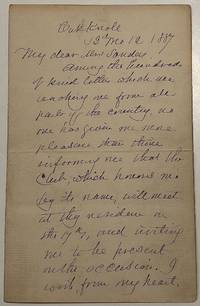 Oak Knoll
12th Mo 12 1887
My dear Mrs Sanders
Among the hundreds
of kind letters which are
reaching me from all
parts of the country, no
one has given me more
pleasure than thine
informing me that the
Club, which honors me
by its name, will meet
at thy residence on
the 17th, and inviting
me to be present
on the occasion. I
wish from my heart,